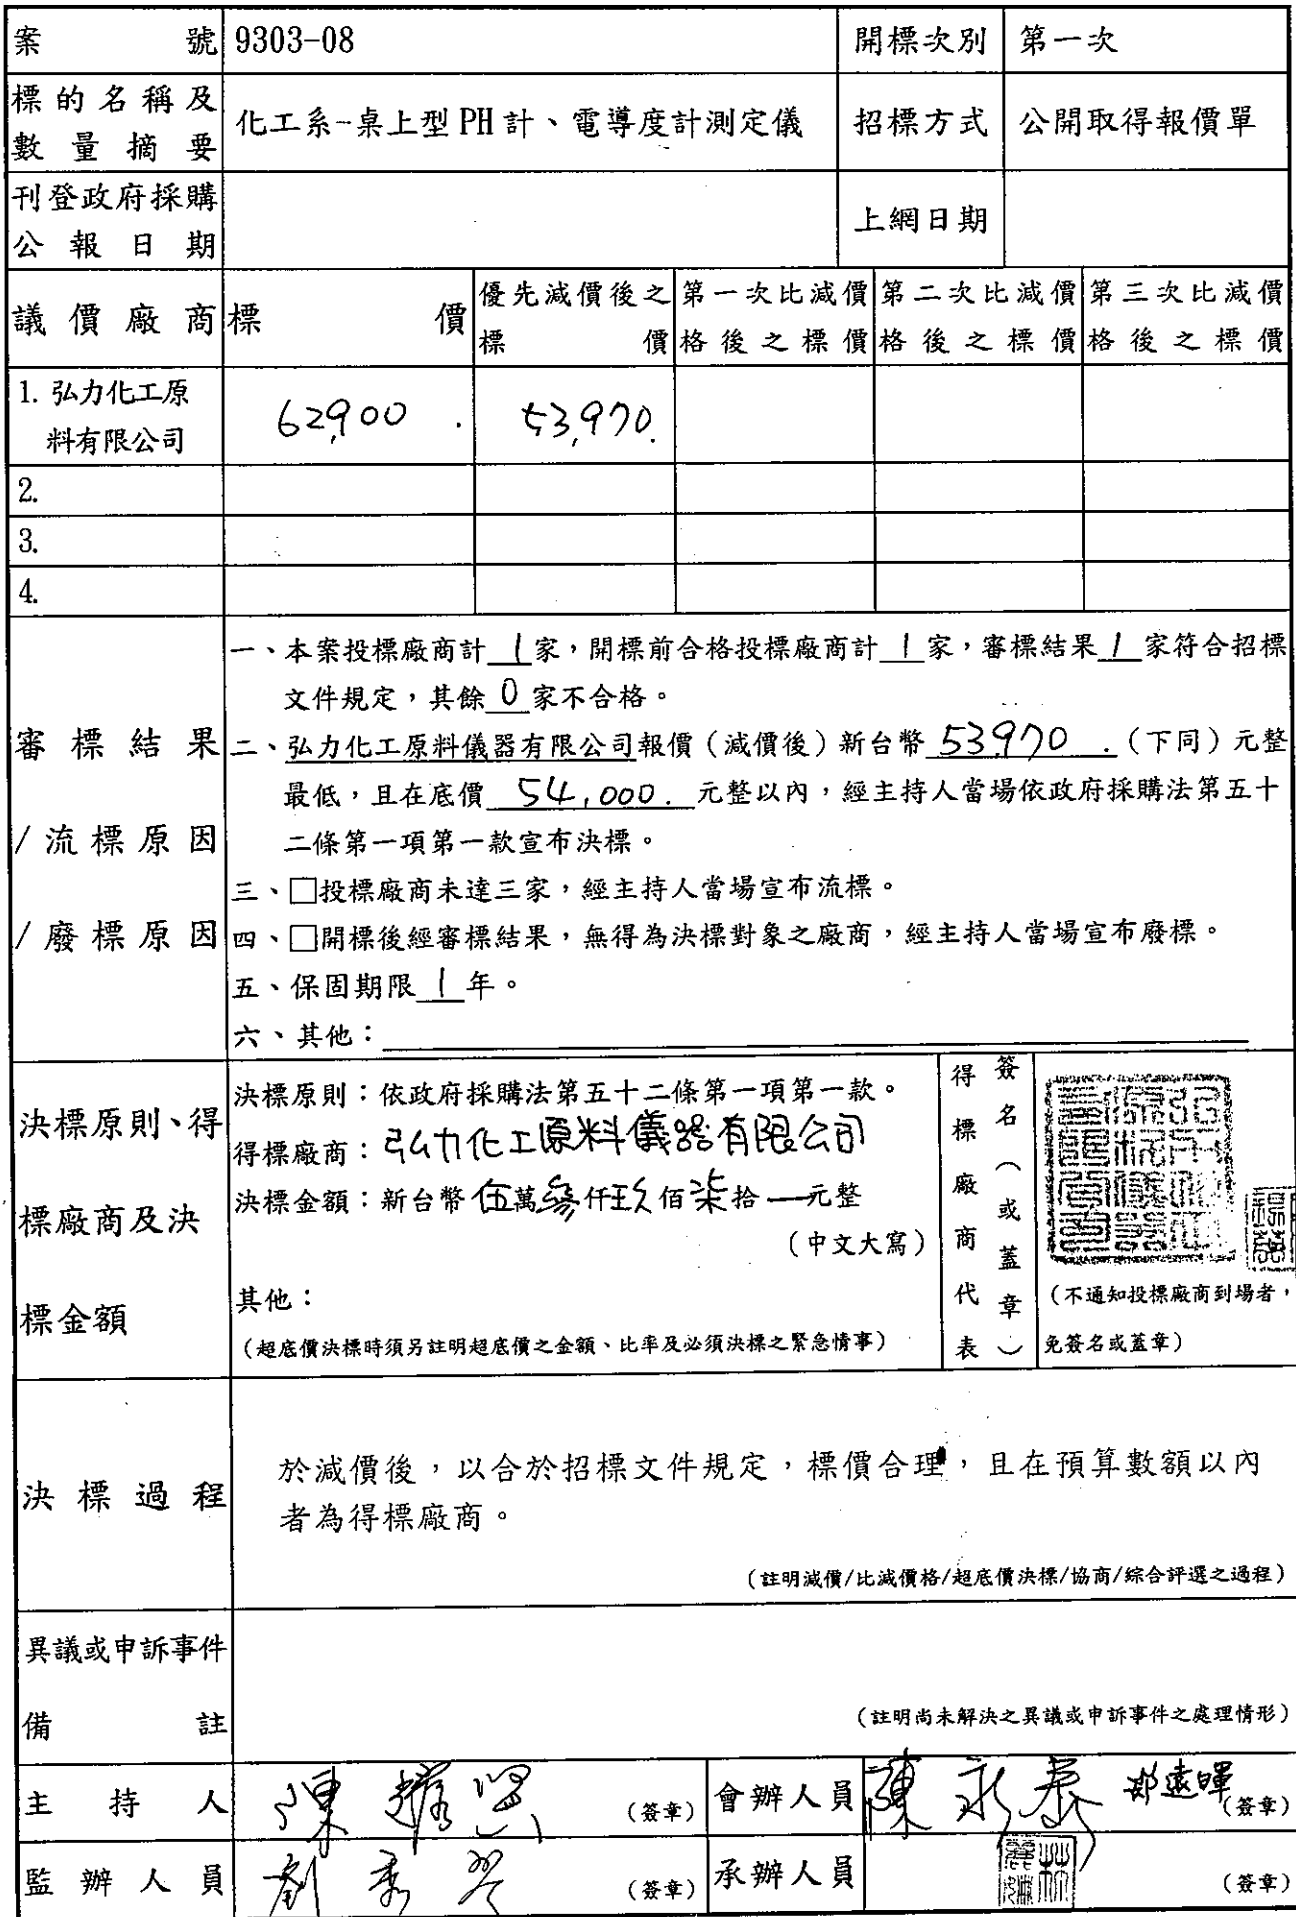 案號 9303-08 開標次別 第一次
標的名稱及數量摘要 化工系-桌上型PH計、電導度計測定儀 招標方式 公開取得報價單
刊登政府採購公報日期 上網日期
議價廠商 標價 優先減價後之標價 第一次比減價格後之標價 第二次比減價格後之標價 第三次比減價格後之標價
1. 弘力化工原料有限公司 62,900. 53,970.
2.
3.
4.
審標結果/流標原因/廢標原因
一、本案投標廠商計 1 家，開標前合格投標廠商計 1 家，審標結果 1 家符合招標
文件規定，其餘 0 家不合格。
二、弘力化工原料儀器有限公司報價（減價後）新台幣 53,970.（下同）元整
最低，且在底價 54,000. 元整以內，經主持人當場依政府採購法第五十
二條第一項第一款宣布決標。
三、□投標廠商未達三家，經主持人當場宣布流標。
四、□開標後經審標結果，無得為決標對象之廠商，經主持人當場宣布廢標。
五、保固期限 1 年。
六、其他：
決標原則、得標廠商及決標金額
決標原則：依政府採購法第五十二條第一項第一款。
得標廠商：弘力化工原料儀器有限公司
決標金額：新台幣伍萬參仟玖佰柒拾—元整
（中文大寫）
其他：
（超底價決標時須另註明超底價之金額、比率及必須決標之緊急情事）
得標廠商代表簽名（或蓋章）
（不通知投標廠商到場者，
免簽名或蓋章）
決標過程
於減價後，以合於招標文件規定，標價合理，且在預算數額以內
者為得標廠商。
（註明減價/比減價格/超底價決標/協商/綜合評選之過程）
異議或申訴事件備註
（註明尚未解決之異議或申訴事件之處理情形）
主持人 陳 （簽章） 會辦人員 陳永泰 遠暉（簽章）
監辦人員 劉秀 （簽章） 承辦人員 林 （簽章）